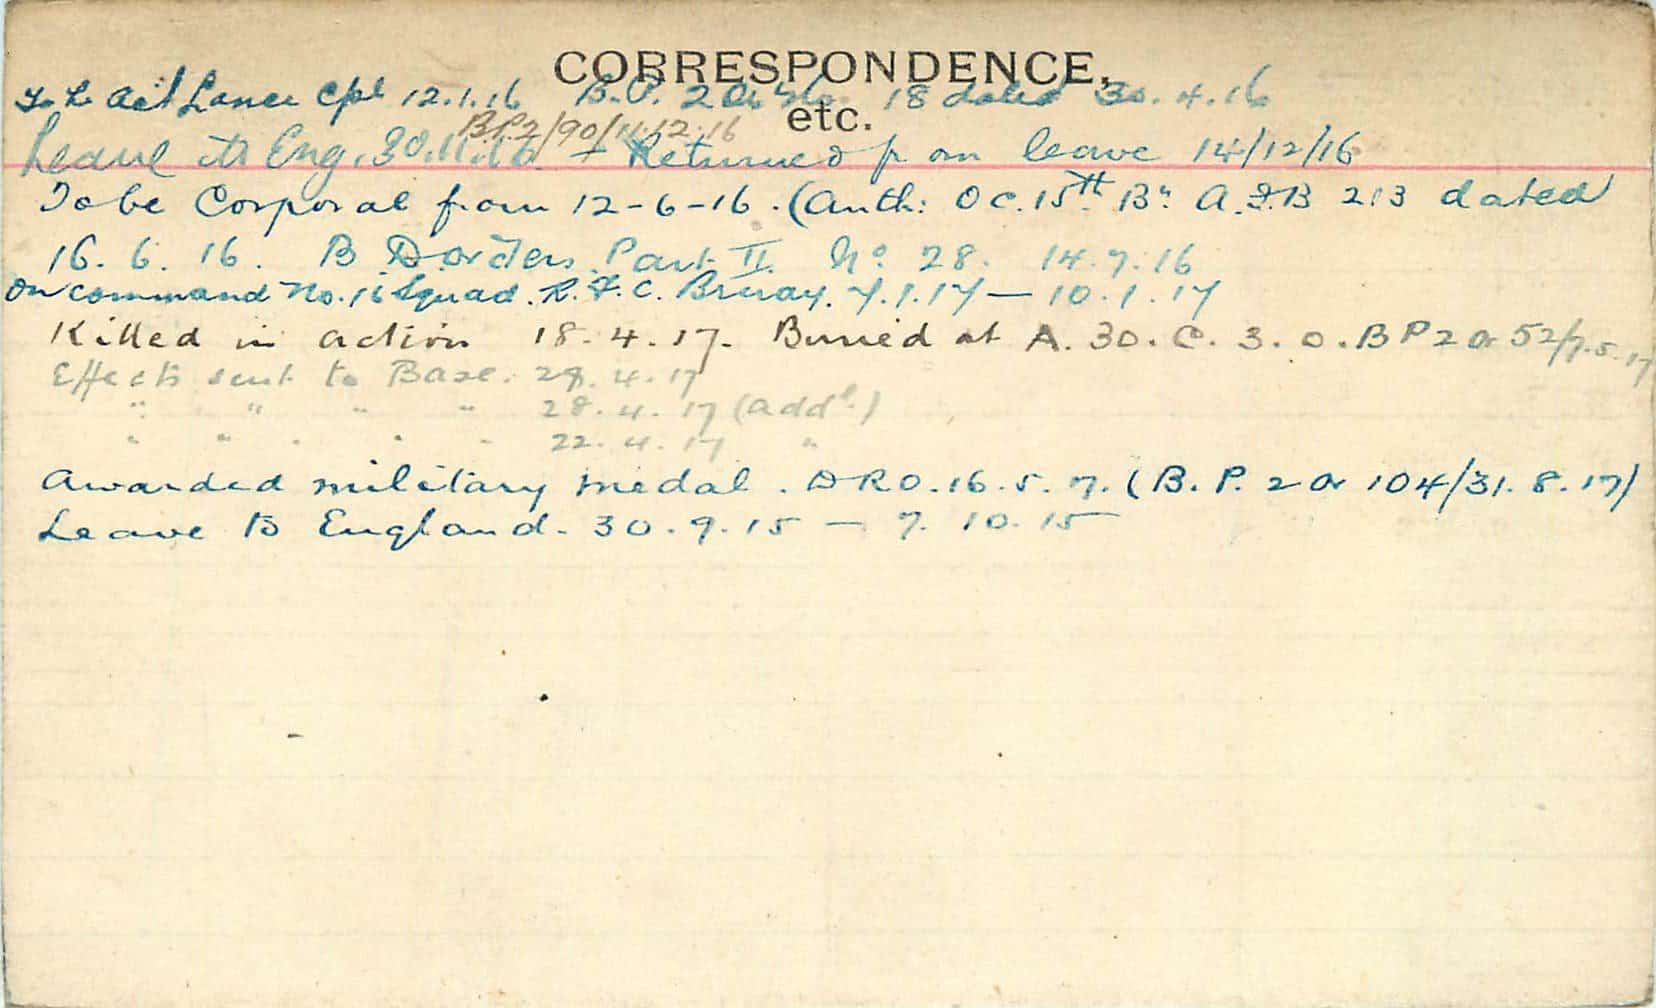 CORRESPONDENCE,
etc.
To be Act Lance Cpl 12.1.16 B.P. 2 Or No 18 dated 30.4.16
B.P.2/90/11.12.16
Leave to Eng. 30.11.16 + Returned from leave 14/12/16
To be Corporal from 12-6-16. (Auth: OC. 15th Bn A.F.B 213 dated
16. 6. 16. B D. orders Part II. No 28. 14.7.16
On command No. 16 Squad. R.F.C. Bruay. 7.1.17 — 10.1.17
Killed in action 18.4.17. Buried at A. 30. C. 3. 0. B P 2 Or 52/7.5.17
Effects sent to Base. 28.4.17
" " " " 28.4.17 (addl.)
" " " " " 22.4.17 "
Awarded military medal. DRO. 16.5.7. (B.P. 2 Or 104/31.8.17)
Leave to England. 30.9.15 — 7.10.15